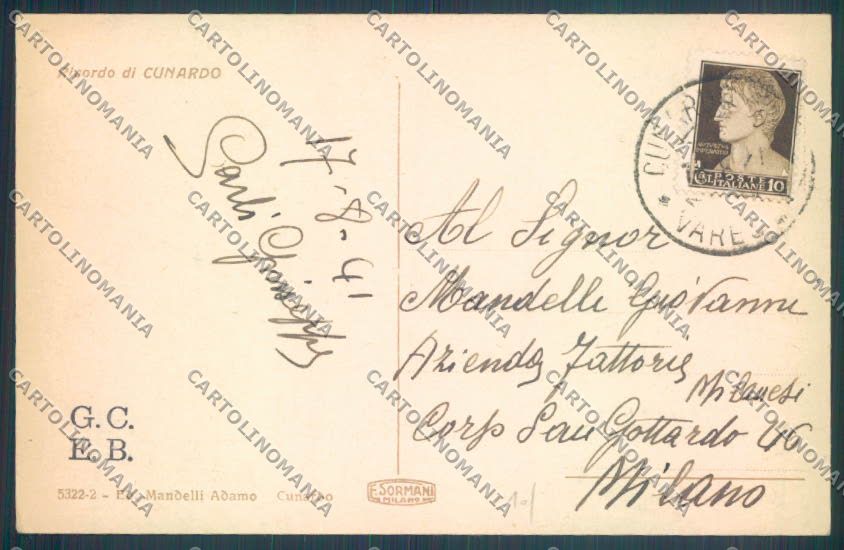 Ricordo di CUNARDO
17-8-41
Carli Giuseppe
G. C.
E. B.
5322-2 - Ed. Mandelli Adamo Cunardo
F. SORMANI
MILANO
POSTE
ITALIANE 10
CUNARDO
VARESE
Al Signor
Mandelli Giovanni
Azienda Fattorie
Milanesi
Corso San Gottardo 46
Milano
CARTOLINOMANIA